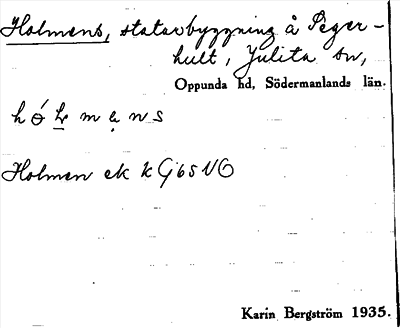 Holmens, statarbyggning å Seger-
hult, Julita sn,
Oppunda hd, Södermanlands län.
Holmen ek k G65NO
Karin Bergström 1935.